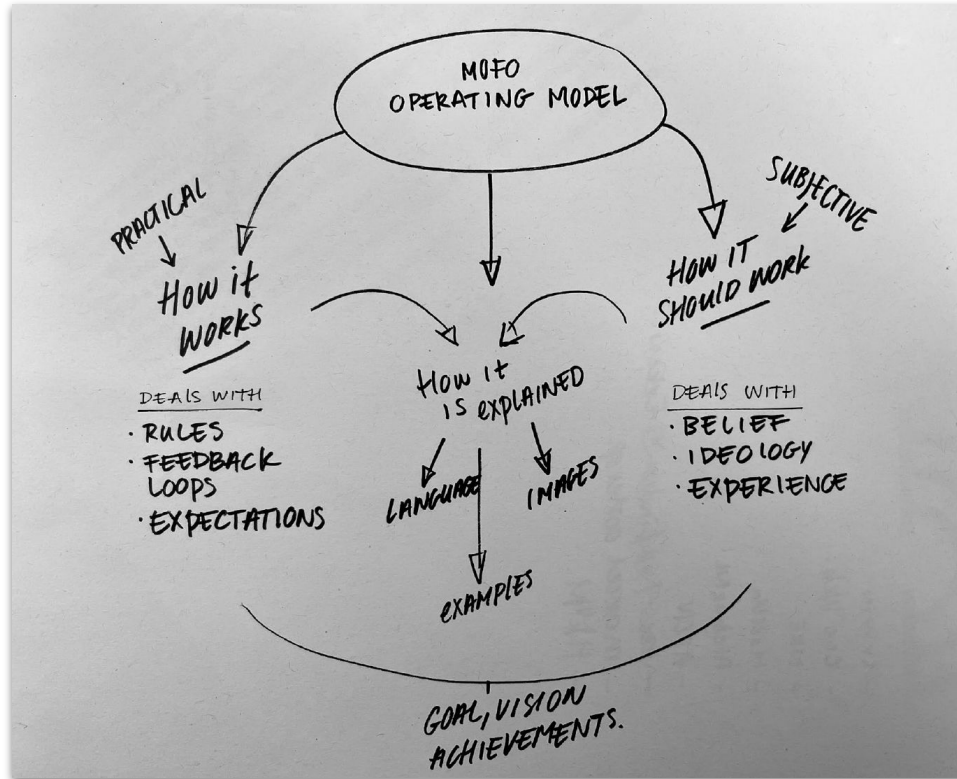 MOFO
OPERATING MODEL
PRACTICAL
How it
WORKS
DEALS WITH
· RULES
· FEEDBACK
LOOPS
· EXPECTATIONS
How it
is explained
LANGUAGE
IMAGES
examples
SUBJECTIVE
HOW IT
SHOULD WORK
DEALS WITH
· BELIEF
· IDEOLOGY
· EXPERIENCE
GOAL, VISION
ACHIEVEMENTS.